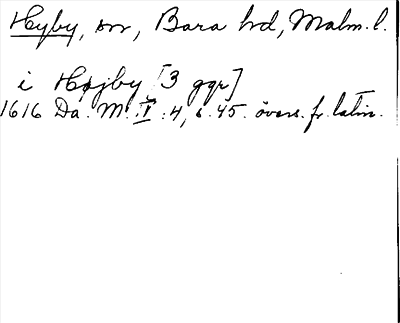 Hyby, sn, Bara hd, Malm. l.
i Højby [3 ggr]
1616 Da. M. V : 4, s. 45. övers. fr. latin.